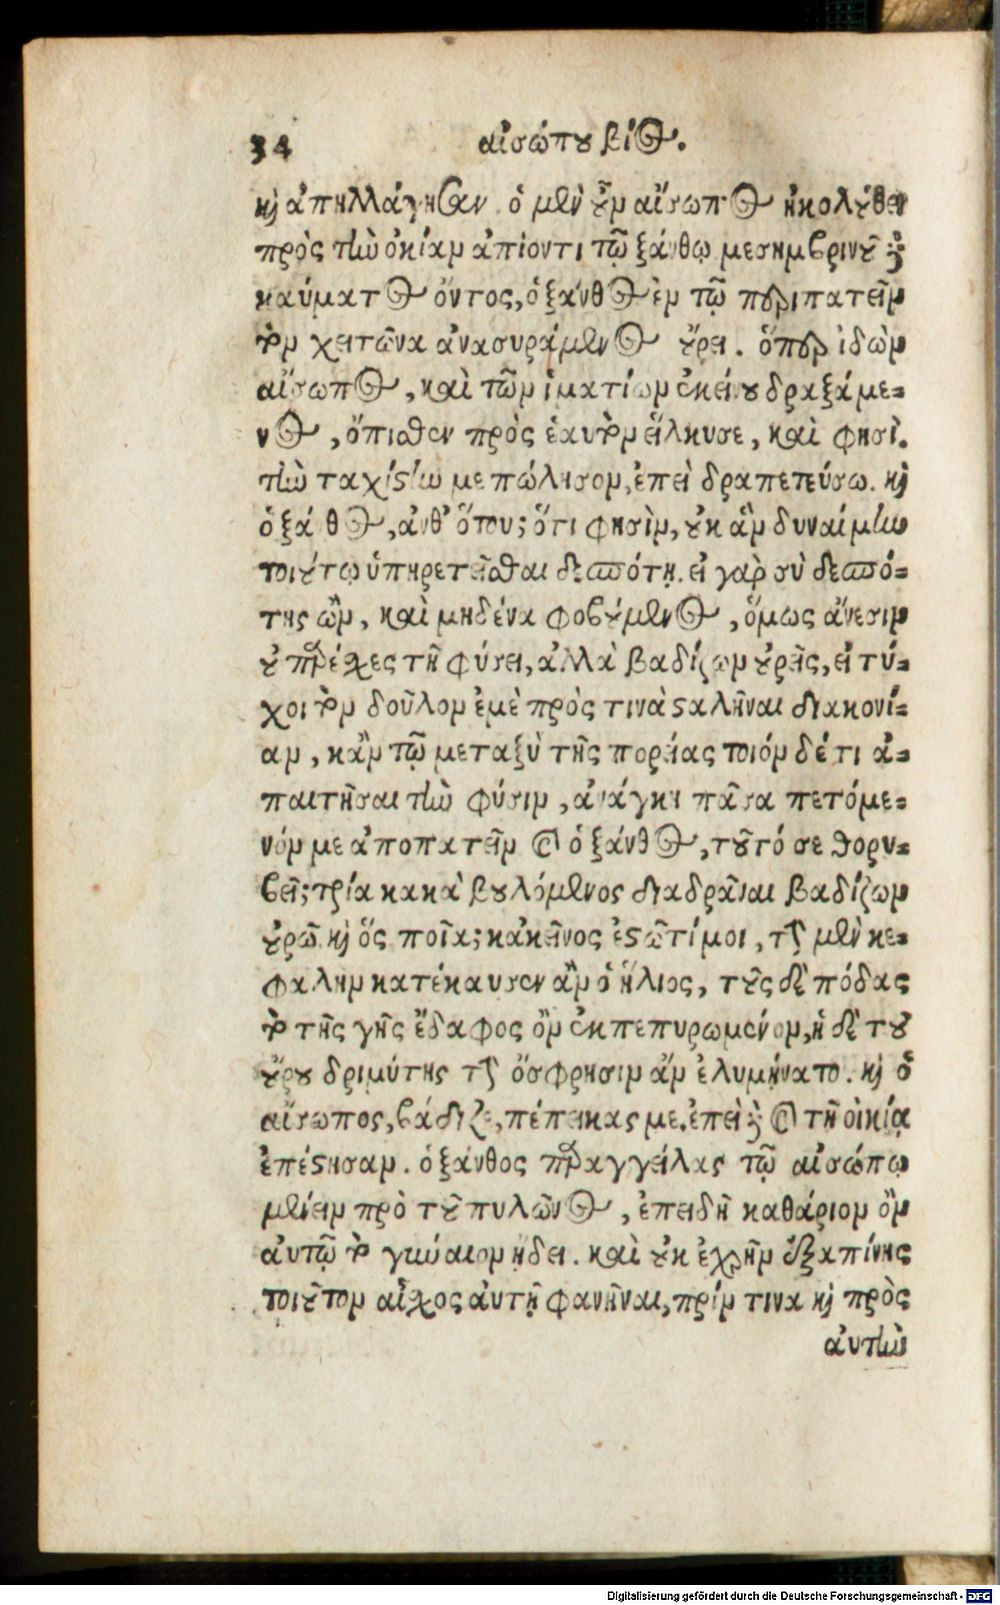 34 αἰσώπου βίος.
καὶ ἀπηλλάγησαν. ὁ μὲν οὖν αἴσωπος ἠκολούθει
πρὸς τὴν οἰκίαν ἀπίοντι τῷ ξάνθῳ. μεσημβρινοῦ δὲ
καύματος ὄντος, ὁ ξάνθος ἐν τῷ περιπατεῖν
τὸν χειτῶνα ἀνασυράμενος οὔρει. ὅπερ ἰδὼν
αἴσωπος, καὶ τῶν ἱματίων ἐκείνου δραξάμε-
νος, ὄπισθεν πρὸς ἑαυτὸν εἵλκυσε, καὶ φησὶ.
τὴν ταχίστην με πώλησον, ἐπεὶ δραπετεύσω. καὶ
ὁ ξάνθος, ἀνθ' ὅτου; ὅτι φησὶν, οὐκ ἂν δυναίμην
τοιούτῳ ὑπηρετεῖσθαι δεσπότῃ. εἰ γὰρ σὺ δεσπό-
της ὢν, καὶ μηδένα φοβούμενος, ὅμως ἄνεσιν
οὐ παρέχες τῇ φύσει, ἀλλὰ βαδίζων οὐρεῖς, εἰ τύ-
χοι τὸν δοῦλον ἐμὲ πρὸς τινὰ σταλῆναι διακονί-
αν, κἂν τῷ μεταξὺ τῆς πορείας τοιόν δέ τι ἀ-
παιτῆσαι τὴν φύσιν, ἀνάγκη πᾶσα πετόμε-
νόν με ἀποπατεῖν. καὶ ὁ ξάνθος, τοῦτό σε θορυ-
βεῖ; τρία κακὰ βουλόμενος διαδρᾶναι βαδίζων
οὐρῶ. καὶ ὃς, ποῖα; κἀκεῖνος ἑστῶτί μοι, τὴν μὲν κε-
φαλὴν κατέκαυσεν ἂν ὁ ἥλιος, τοὺς δὲ πόδας
τὸ τῆς γῆς ἔδαφος ὂν ἐκπεπυρωμένον, ἡ δὲ τοῦ
οὔρου δριμύτης τὴν ὄσφρησιν ἂν ἐλυμήνατο. καὶ ὁ
αἴσωπος, βάδιζε, πέπεικας με. ἐπεὶ δὲ καὶ τῇ οἰκίᾳ
ἐπέστησαν. ὁ ξάνθος παραγγείλας τῷ αἰσώπῳ
μένειν πρὸ τοῦ πυλῶνος, ἐπειδὴ καθάριον ὂν
αὐτῷ τὸ γύναιον ᾔδει. καὶ οὐκ ἐχρῆν ἐξαπίνης
τοιοῦτον αἶχος αὐτῇ φανῆναι, πρίν τινα καὶ πρὸς
αὐτὴν
Digitalisierung gefördert durch die Deutsche Forschungsgemeinschaft - DFG